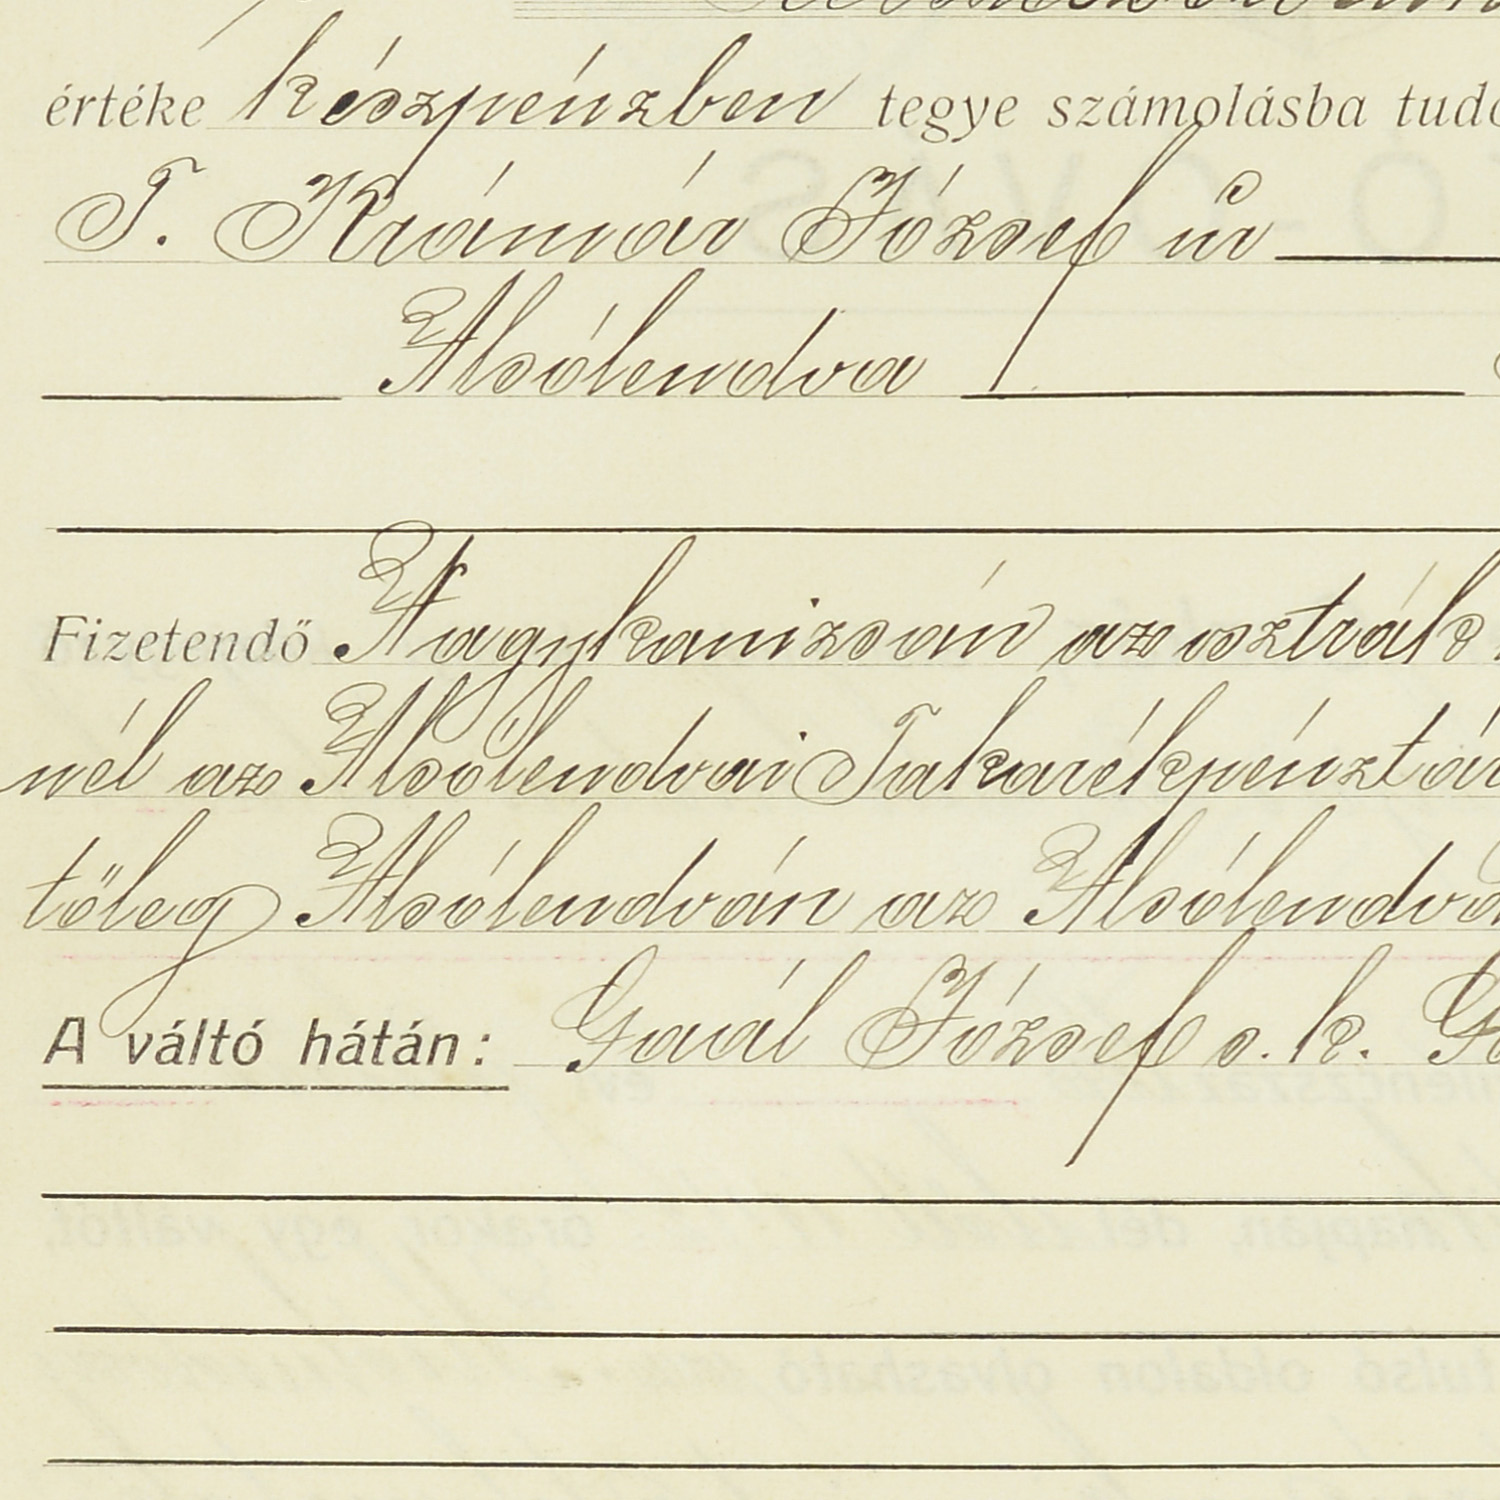 értéke készpénzben tegye számolásba
T. Krámár József úr
Alsólendva
Fizetendő Nagykanizsán az osztrák
nél az Alsólendvai Takarékpénztár
tőleg Alsólendván az Alsólendva
A váltó hátán: Gaál József s. k.